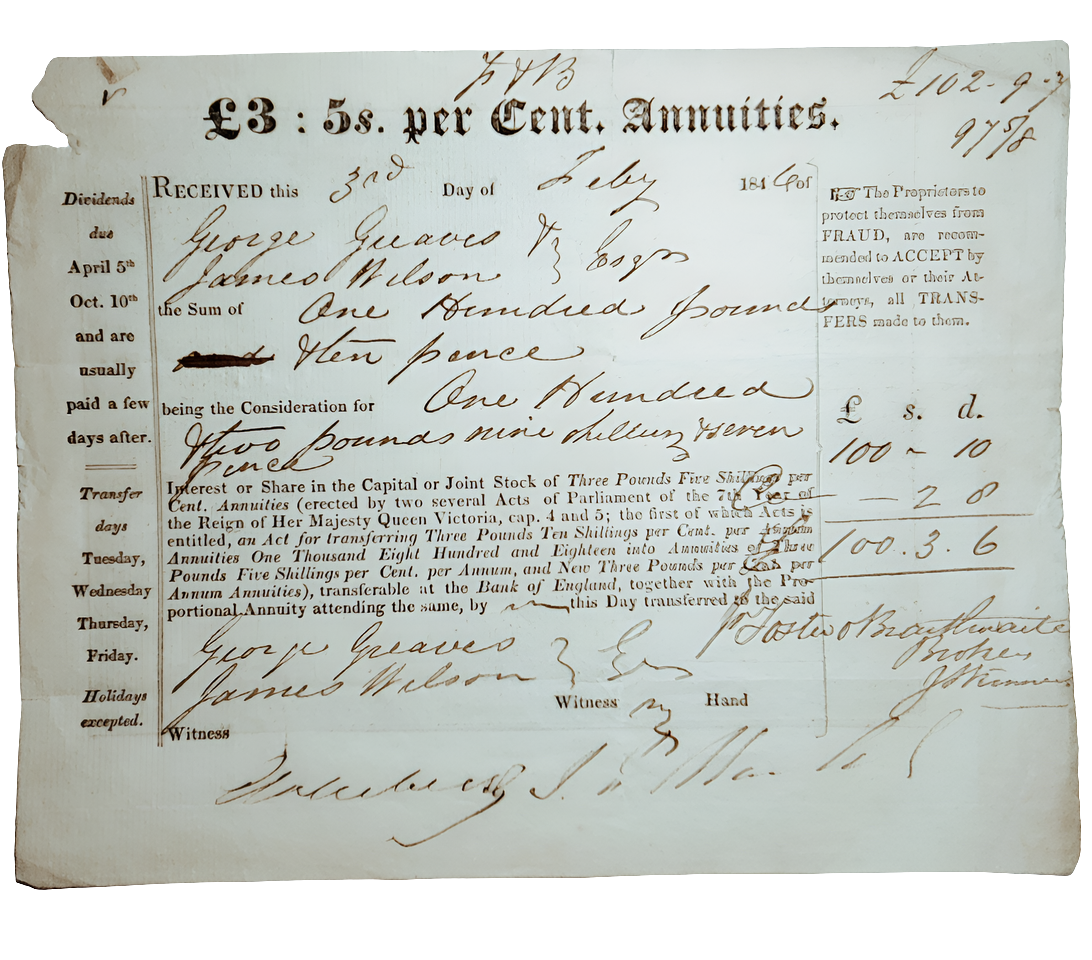 F & B
£102-9-7
£3 : 5s. per Cent. Annuities.
97 5/8
Dividends
due
April 5th
Oct. 10th
and are
usually
paid a few
days after.
Transfer
days
Tuesday,
Wednesday
Thursday,
Friday.
Holidays
excepted.
RECEIVED this 3rd Day of Feby 1846 of
George Greaves &
James Wilson Esqrs
the Sum of One Hundred pounds
& ten pence
being the Consideration for One Hundred
& two pounds nine shillings & seven
pence
Interest or Share in the Capital or Joint Stock of Three Pounds Five Shillings per
Cent. Annuities (erected by two several Acts of Parliament of the 7th Year of
the Reign of Her Majesty Queen Victoria, cap. 4 and 5; the first of which Acts is
entitled, an Act for transferring Three Pounds Ten Shillings per Cent. per Annum
Annuities One Thousand Eight Hundred and Eighteen into Annuities of Three
Pounds Five Shillings per Cent. per Annum, and New Three Pounds per Cent. per
Annum Annuities), transferable at the Bank of England, together with the Pro-
portional Annuity attending the same, by this Day transferred to the said
George Greaves
James Wilson
Witness my Hand
Witness
The Proprietors to
protect themselves from
FRAUD, are recom-
mended to ACCEPT by
themselves or their At-
torneys, all TRANS-
FERS made to them.
£ s. d.
100 - 10
- 2 8
100.3.6
Foster & Braithwaite
Brokers